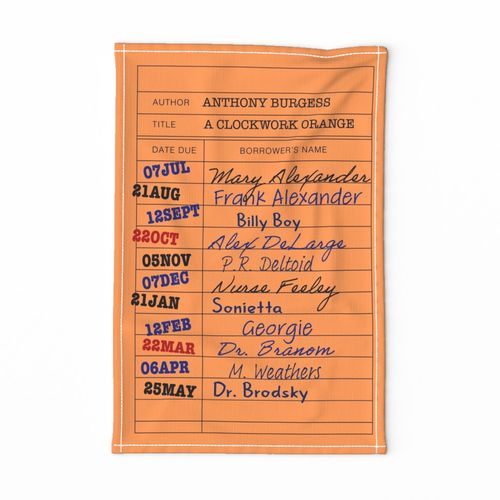 AUTHOR ANTHONY BURGESS
TITLE A CLOCKWORK ORANGE
DATE DUE BORROWER'S NAME
07JUL Mary Alexander
21AUG Frank Alexander
12SEPT Billy Boy
22OCT Alex DeLarge
05NOV P.R. Deltoid
07DEC Nurse Feeley
21JAN Sonietta
12FEB Georgie
22MAR Dr. Branom
06APR M. Weathers
25MAY Dr. Brodsky